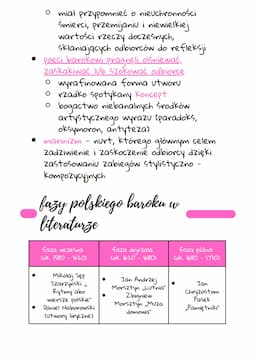 miał przypomnieć o nieuchronności
śmierci, przemijaniu i niewielkiej
wartości rzeczy doczesnych,
skłaniających odbiorców do refleksji
poeci barokowi pragnęli olśniewać,
zaskakiwać lub szokować odbiorcę
wyrafinowana forma utworu
rzadko spotykany koncept
bogactwo niebanalnych środków
artystycznego wyrazu (paradoks,
oksymoron, antyteza)
marinizm - nurt, którego głównym celem
zadziwienie i zaskoczenie odbiorcy dzięki
zastosowaniu zabiegów stylistyczno -
kompozycyjnych
fazy polskiego baroku w
literaturze
faza wczesna
(ok. 1580 - 1620)
faza dojrzała
(ok. 1620 - 1680)
faza późna
(ok. 1680 - 1750)
Mikołaj Sęp
Szarzyński „
Rytmy abo
wiersze polskie"
Daniel Naborowski
(utwory liryczne)
Jan Andrzej
Morsztyn „Lutnia"
Zbigniew
Morsztyn „Muza
domowa"
Jan
Chryzostom
Pasek
„Pamiętniki"